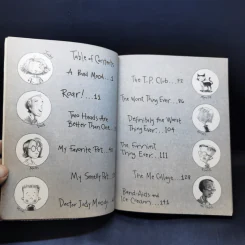 Table of Contents
A Bad Mood...1
Roar!...11
Two Heads Are
Better Than One...
My Favorite Pet...
My Smelly Pet...
Doctor Judy Moody
The T.P. Club...
The Worst Thing Ever...
Definitely the Worst
Thing Ever...104
The Funniest
Thing Ever...111
The Me Collage...
Band-Aids and
Ice Cream...